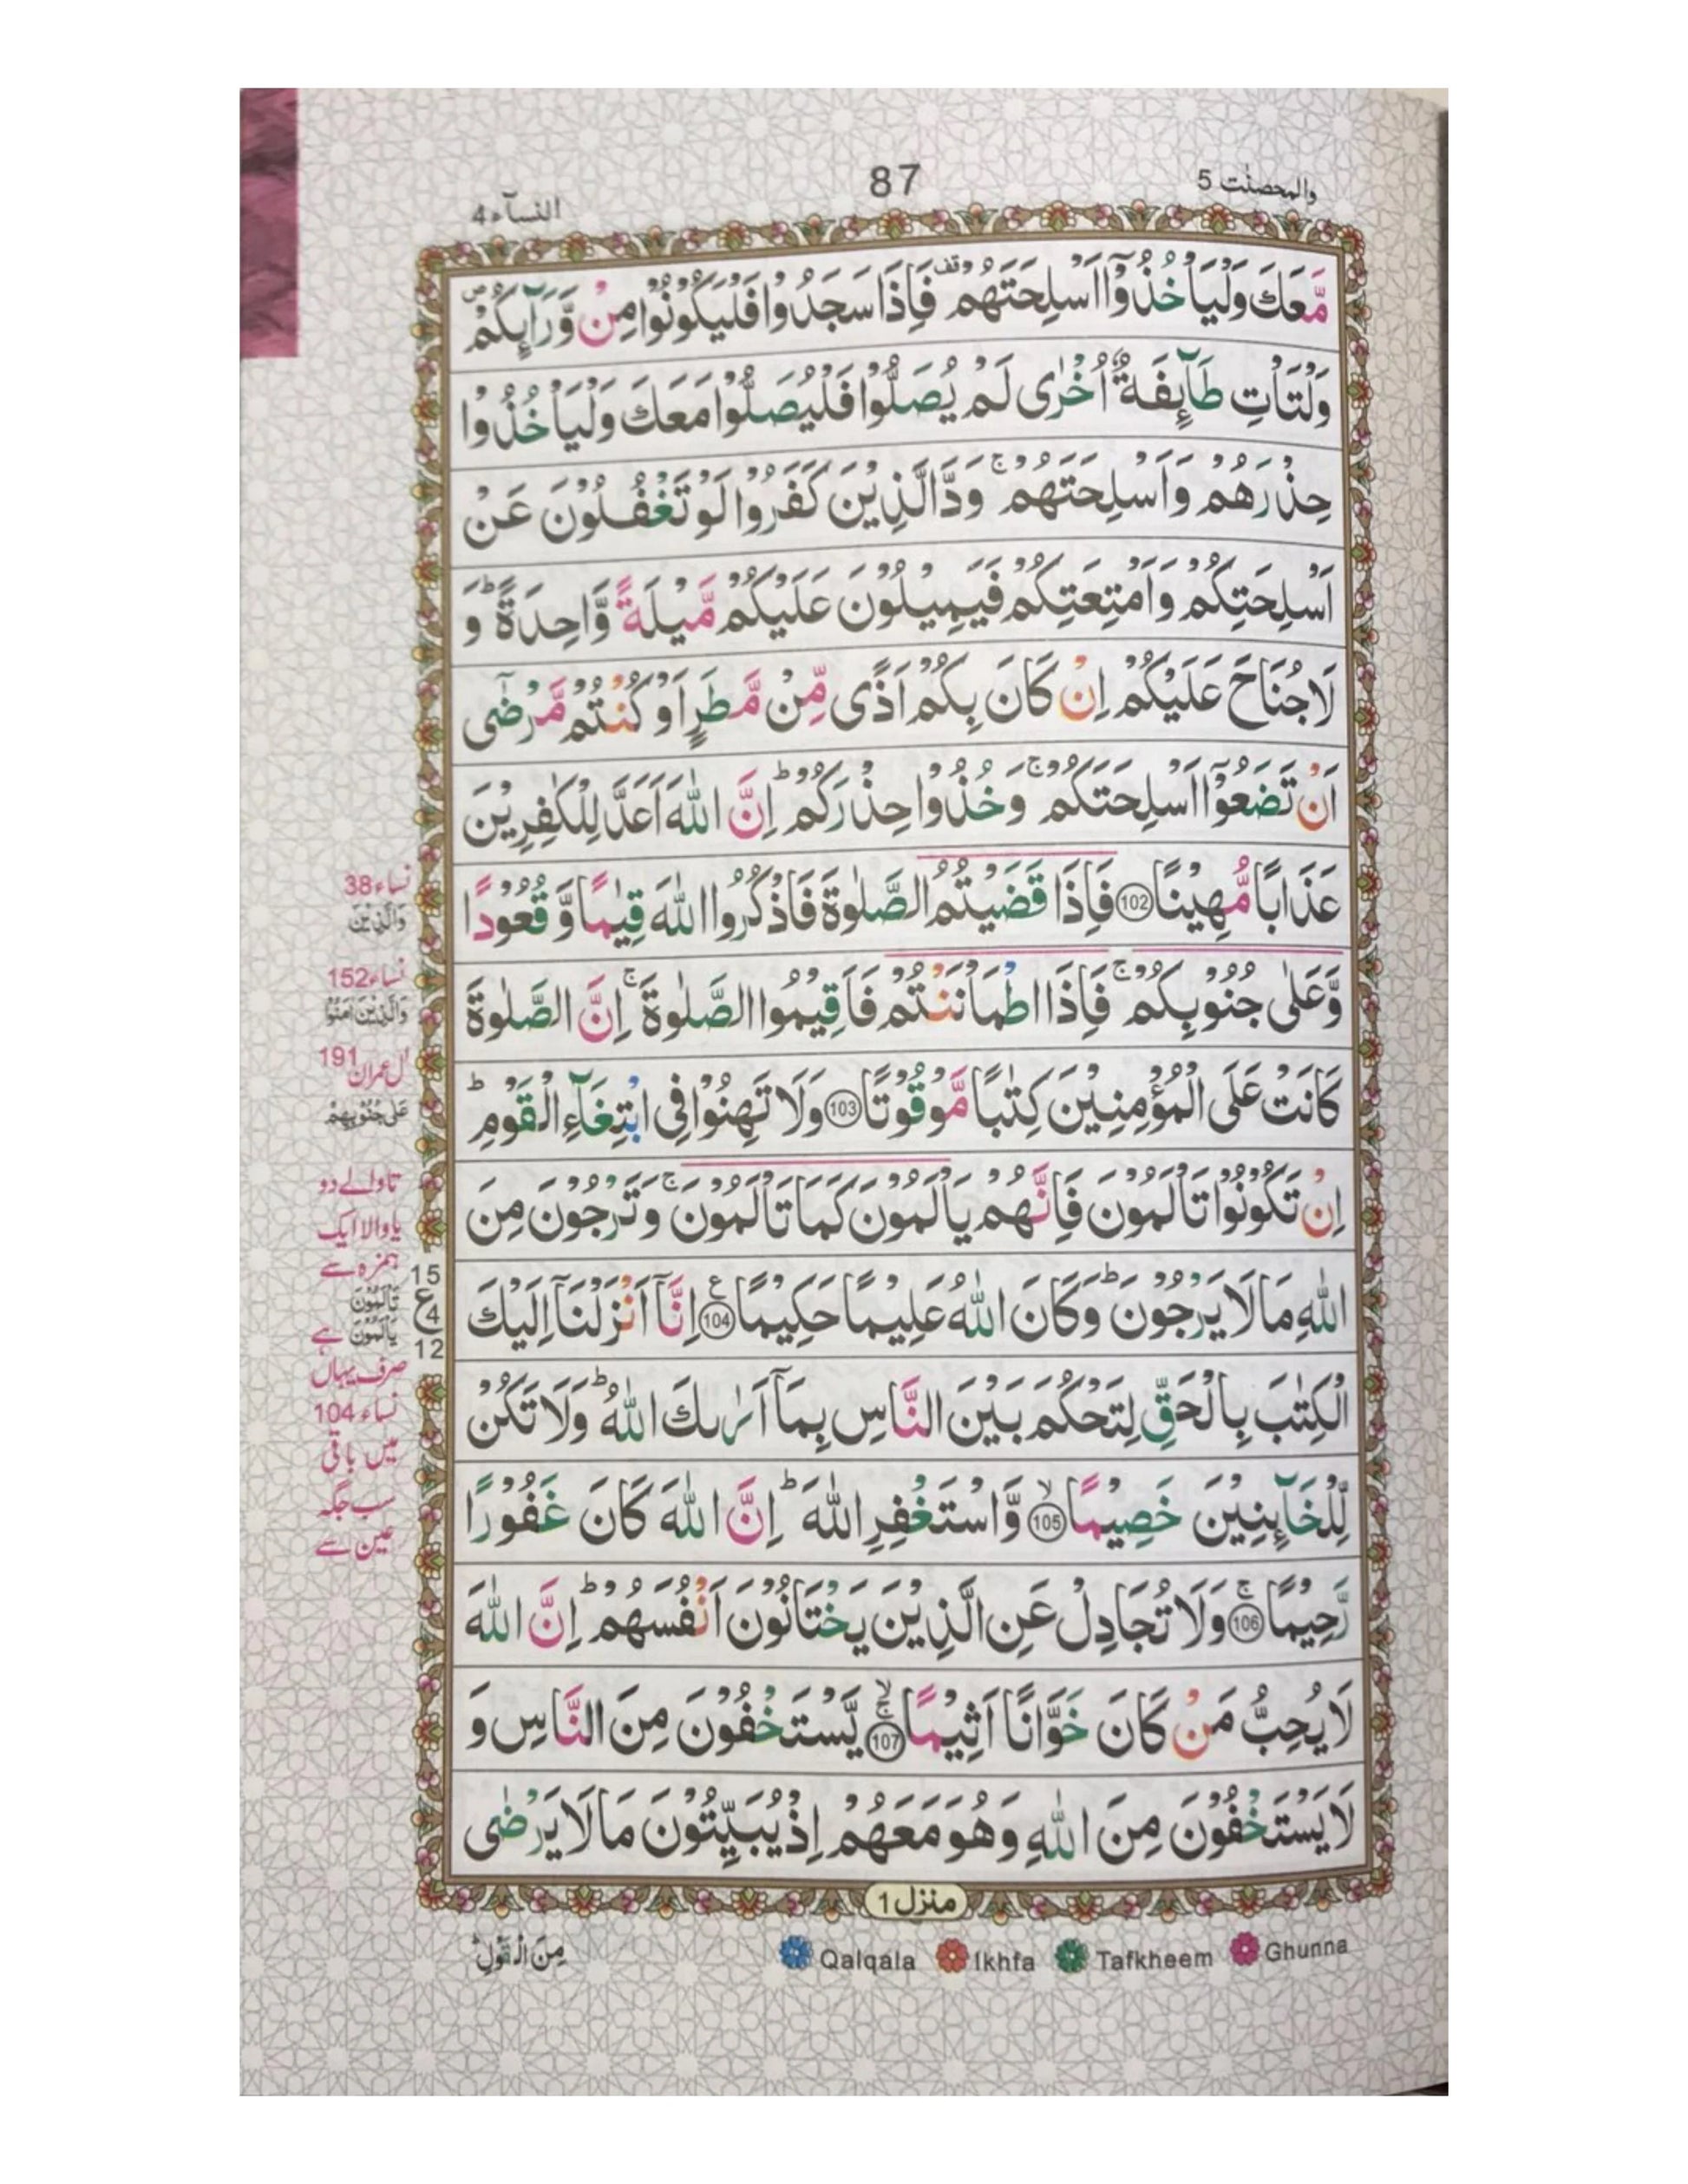 والمحصنٰت 5
87
النسآء 4
مَّعَكَ وَلْيَاْخُذُوْۤا اَسْلِحَتَهُمْ وقف فَاِذَا سَجَدُوْا فَلْيَكُوْنُوْا مِنْ وَّرَآىِٕكُمْ ص
وَلْتَاْتِ طَآىِٕفَةٌ اُخْرٰى لَمْ يُصَلُّوْا فَلْيُصَلُّوْا مَعَكَ وَلْيَاْخُذُوْا
حِذْرَهُمْ وَاَسْلِحَتَهُمْ ۚ وَدَّ الَّذِيْنَ كَفَرُوْا لَوْ تَغْفُلُوْنَ عَنْ
اَسْلِحَتِكُمْ وَاَمْتِعَتِكُمْ فَيَمِيْلُوْنَ عَلَيْكُمْ مَّيْلَةً وَّاحِدَةً ؕ وَ
لَا جُنَاحَ عَلَيْكُمْ اِنْ كَانَ بِكُمْ اَذًى مِّنْ مَّطَرٍ اَوْ كُنْتُمْ مَّرْضٰۤى
اَنْ تَضَعُوْۤا اَسْلِحَتَكُمْ ۚ وَخُذُوْا حِذْرَكُمْ ؕ اِنَّ اللّٰهَ اَعَدَّ لِلْكٰفِرِيْنَ
عَذَابًا مُّهِيْنًا 102 فَاِذَا قَضَيْتُمُ الصَّلٰوةَ فَاذْكُرُوا اللّٰهَ قِيٰمًا وَّقُعُوْدًا
وَّعَلٰى جُنُوْبِكُمْ ۚ فَاِذَا اطْمَاْنَنْتُمْ فَاَقِيْمُوا الصَّلٰوةَ ۚ اِنَّ الصَّلٰوةَ
كَانَتْ عَلَى الْمُؤْمِنِيْنَ كِتٰبًا مَّوْقُوْتًا 103 وَلَا تَهِنُوْا فِى ابْتِغَآءِ الْقَوْمِ ؕ
اِنْ تَكُوْنُوْا تَاْلَمُوْنَ فَاِنَّهُمْ يَاْلَمُوْنَ كَمَا تَاْلَمُوْنَ ۚ وَتَرْجُوْنَ مِنَ
اللّٰهِ مَا لَا يَرْجُوْنَ ؕ وَكَانَ اللّٰهُ عَلِيْمًا حَكِيْمًا 104 ع اِنَّاۤ اَنْزَلْنَاۤ اِلَيْكَ
الْكِتٰبَ بِالْحَقِّ لِتَحْكُمَ بَيْنَ النَّاسِ بِمَاۤ اَرٰىكَ اللّٰهُ ؕ وَلَا تَكُنْ
لِّلْخَآىِٕنِيْنَ خَصِيْمًا 105 ۙ وَّاسْتَغْفِرِ اللّٰهَ ؕ اِنَّ اللّٰهَ كَانَ غَفُوْرًا
رَّحِيْمًا 106 ۚ وَلَا تُجَادِلْ عَنِ الَّذِيْنَ يَخْتَانُوْنَ اَنْفُسَهُمْ ؕ اِنَّ اللّٰهَ
لَا يُحِبُّ مَنْ كَانَ خَوَّانًا اَثِيْمًا 107 ۚۙ يَّسْتَخْفُوْنَ مِنَ النَّاسِ وَ
لَا يَسْتَخْفُوْنَ مِنَ اللّٰهِ وَهُوَ مَعَهُمْ اِذْ يُبَيِّتُوْنَ مَا لَا يَرْضٰى
نساء 38
وَالَّذِيْنَ
نساء 152
وَالَّذِيْنَ اٰمَنُوْا
اٰل عمران 191
عَلٰى جُنُوْبِهِمْ
تا والے دو
یا والا ایک
ہمزہ سے
تَاْلَمُوْنَ
يَاْلَمُوْنَ ہے
صرف یہاں
نساء 104
میں باقی
سب جگہ
عین سے
15
ع 4
12
منزل 1
Qalqala Ikhfa Tafkheem Ghunna
مِنَ الْقَوْلِ ؕ